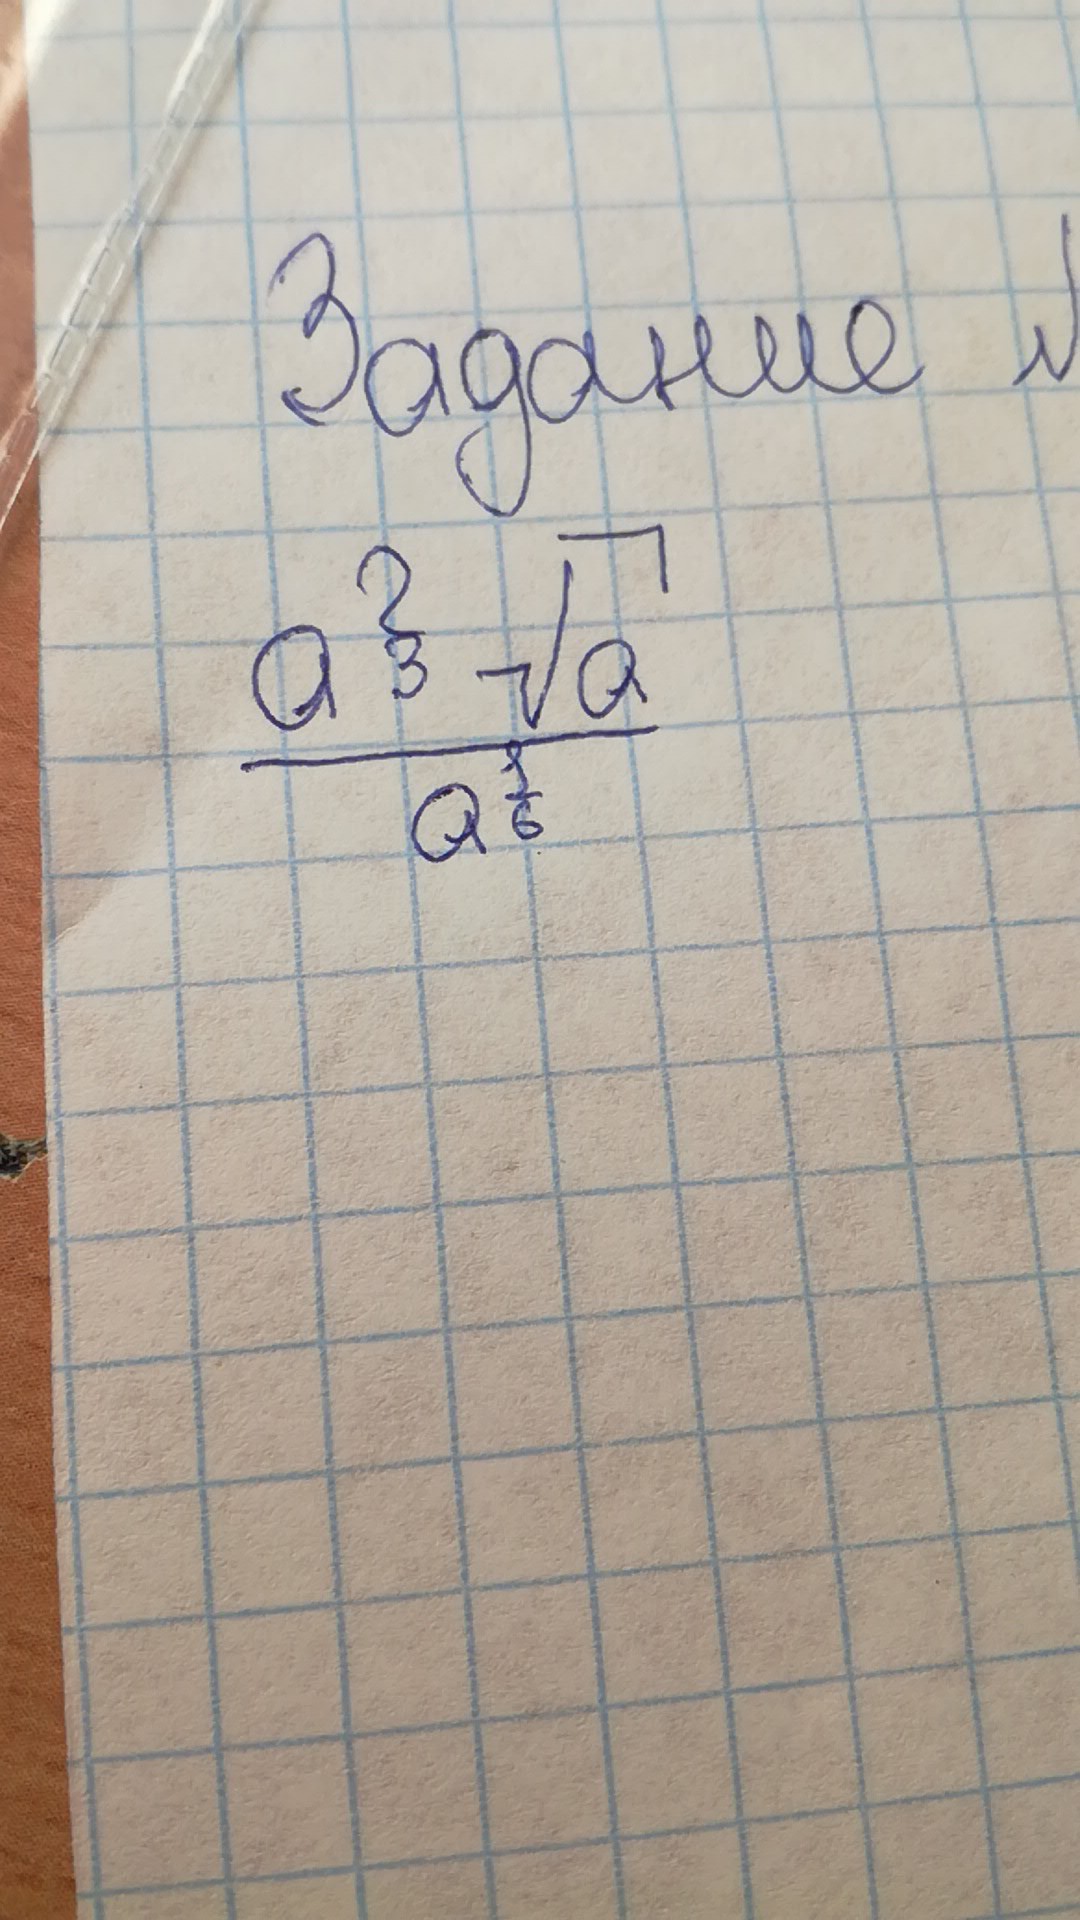 Задание №
a^{2/3} √a
a^{1/6}